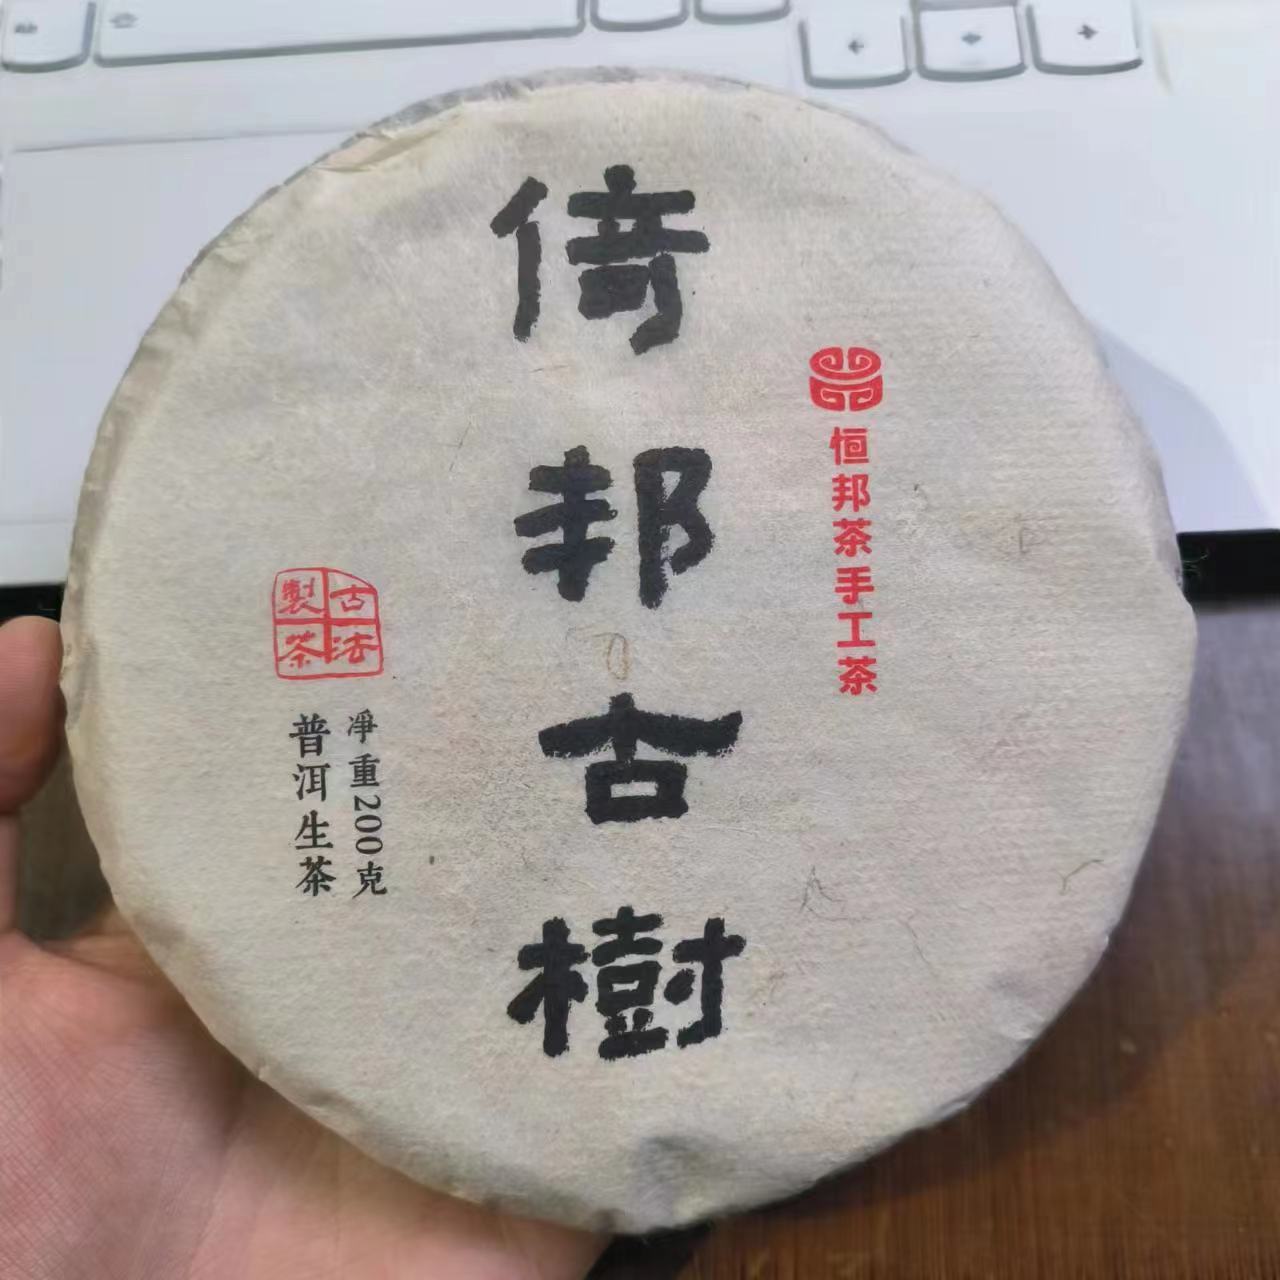 恒邦茶手工茶
倚邦古樹
古法
製茶
淨重200克
普洱生茶